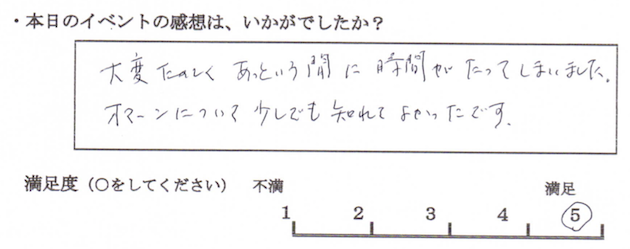 ・本日のイベントの感想は、いかがでしたか？
大変たのしく あっという間に時間がたってしまいました。
オマーンについて少しでも知れてよかったです。
満足度（○をしてください） 不満 満足
1 2 3 4 5